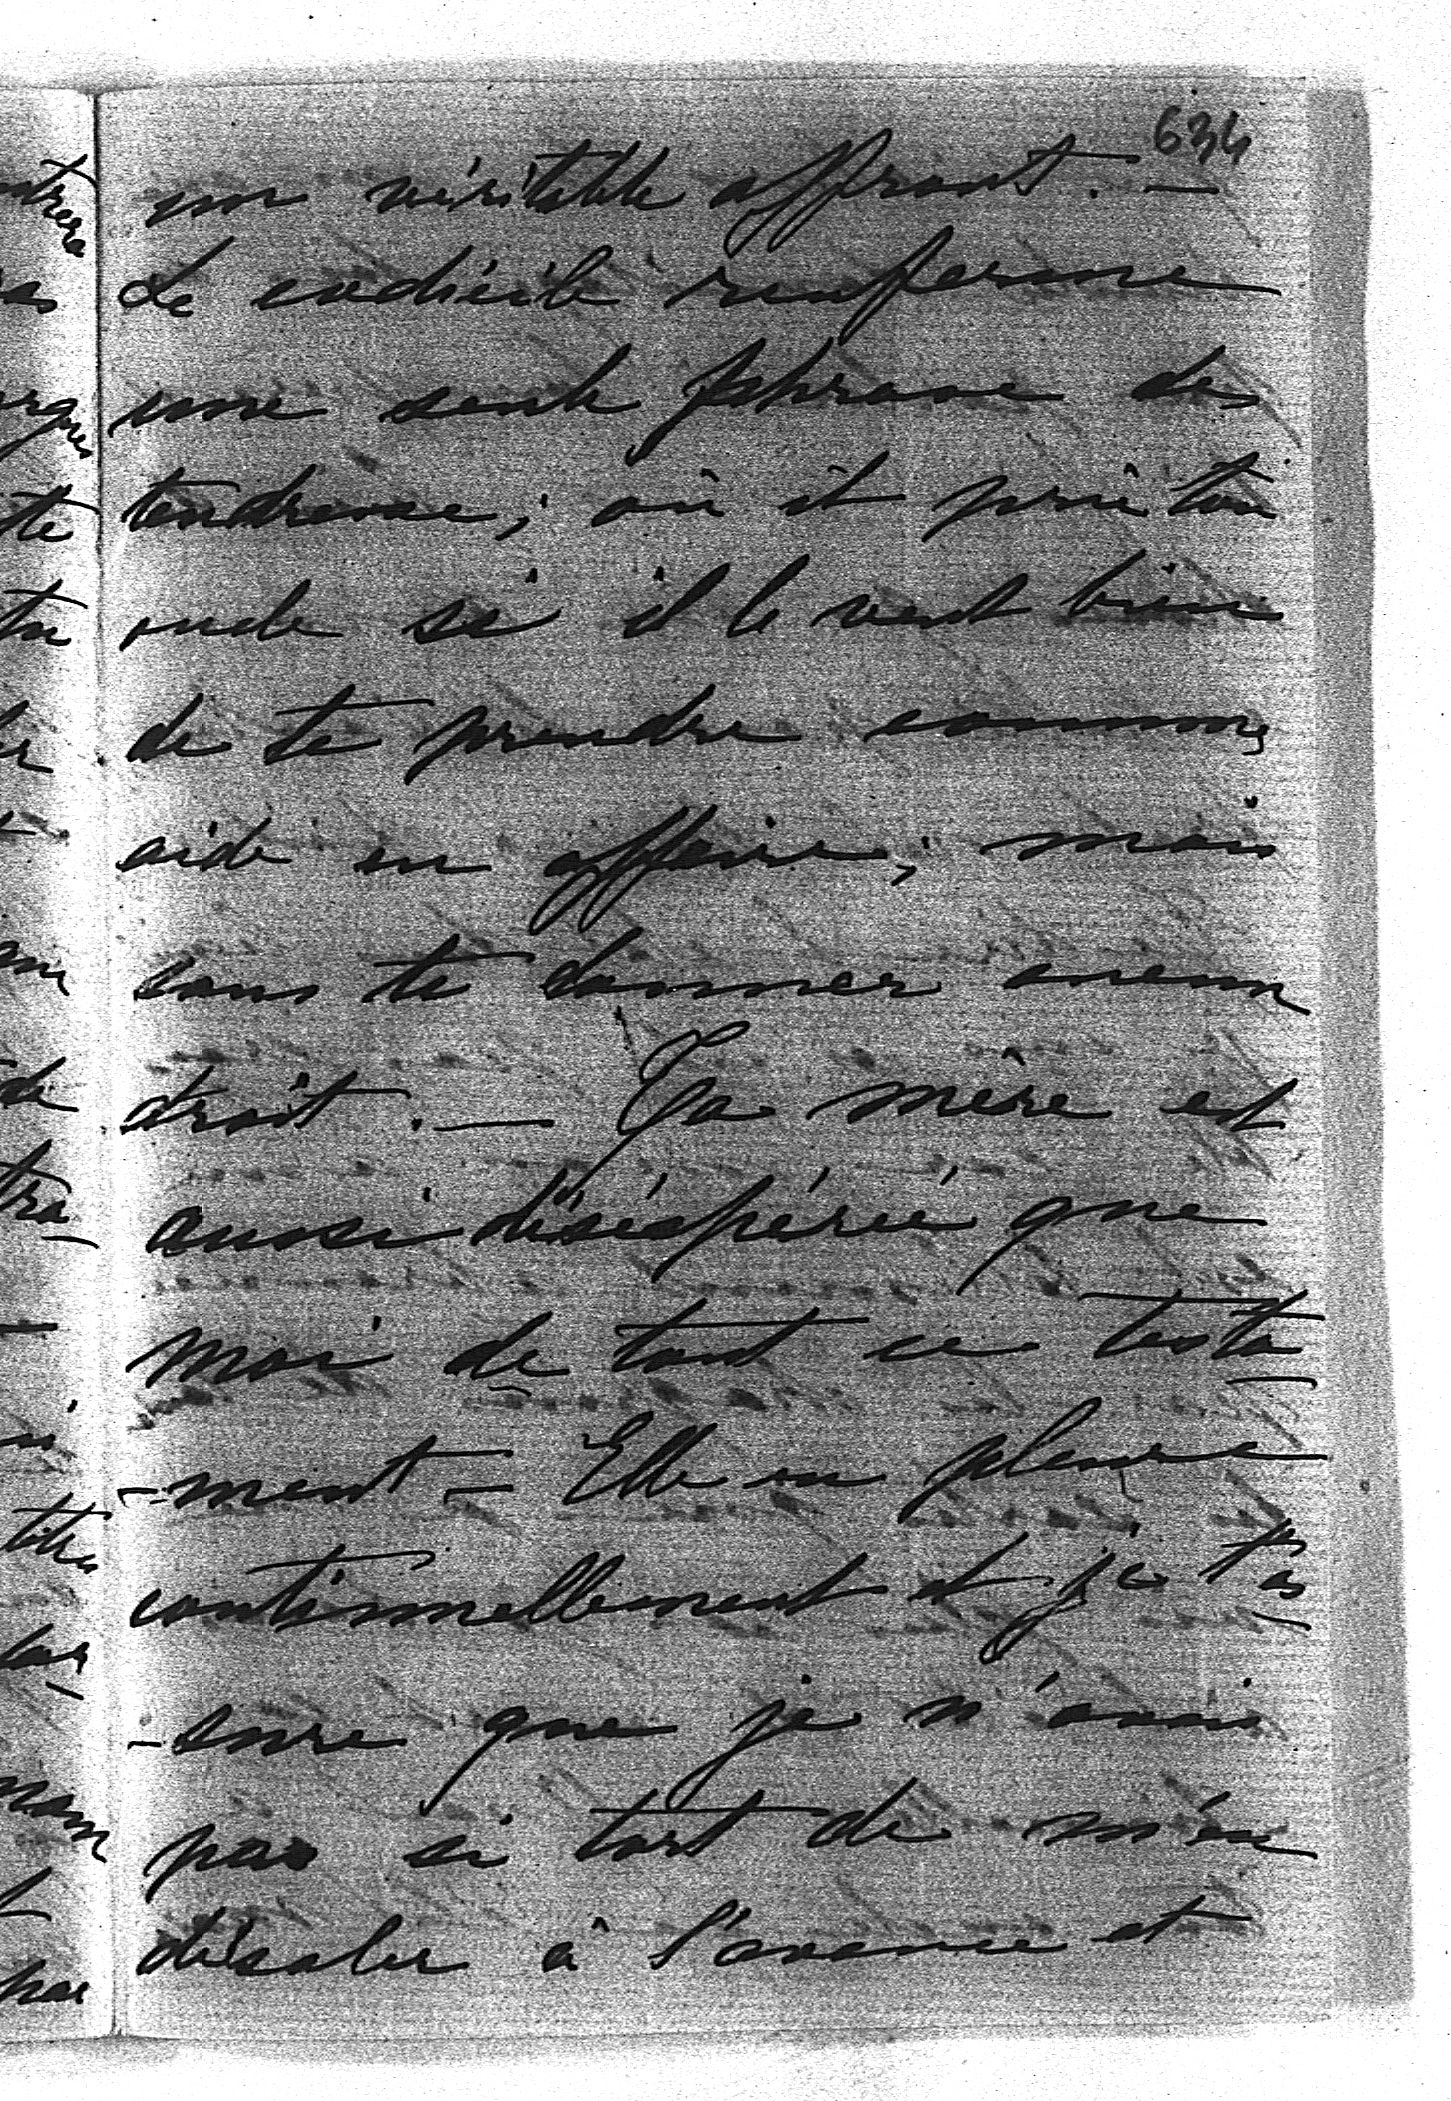 634
un véritable affront. —
Le codicile renferme
une seule phrase de
tendresse, où il prie ton
oncle si il le veut bien
de te prendre comme
aide en affaire, mais
sans te donner aucun
droit. — Ta mère est
aussi déséspérée que
moi de tout ce testa
-ment — Elle en pleure
continuellement et je t'as
-sure que je n'avais
pas si tort de m'en
désoler à l'avance et